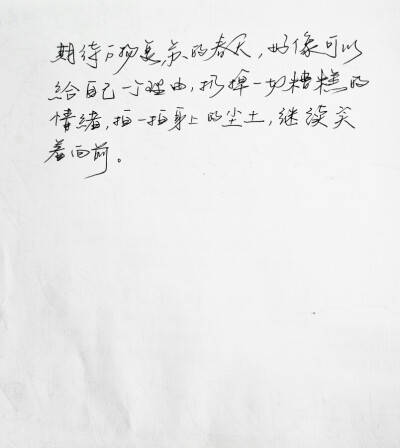 期待万物复苏的春天，好像可以
给自己一个理由，扔掉一切糟糕的
情绪，拍一拍身上的尘土，继续笑
着向前。